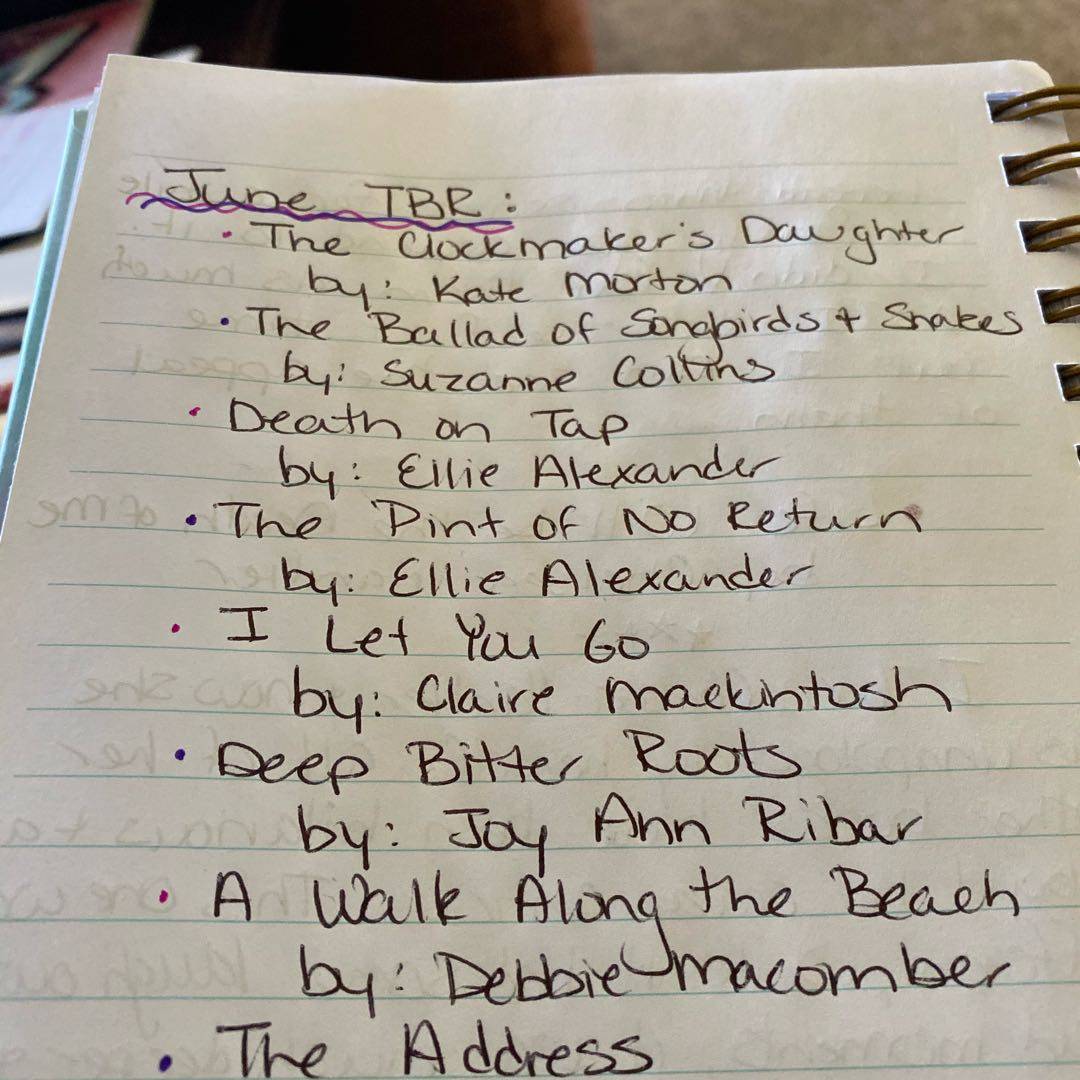 June TBR:
• The Clockmaker's Daughter
by: Kate Morton
• The Ballad of Songbirds + Snakes
by: Suzanne Collins
• Death on Tap
by: Ellie Alexander
• The Pint of No Return
by: Ellie Alexander
• I Let You Go
by: Claire Mackintosh
• Deep Bitter Roots
by: Joy Ann Ribar
• A Walk Along the Beach
by: Debbie Macomber
• The Address